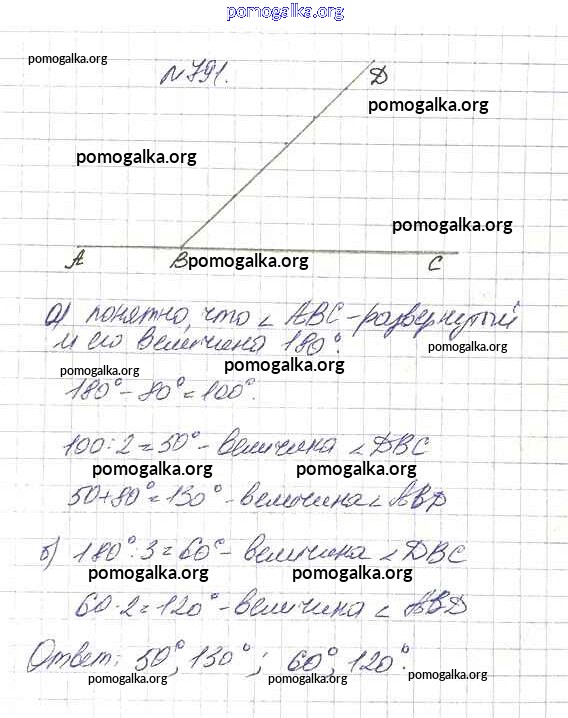 pomogalka.org
pomogalka.org
N791.
D
pomogalka.org
pomogalka.org
pomogalka.org
A B pomogalka.org C
а) понятно, что ∠ ABC - развернутый
и его величина 180°.
pomogalka.org
pomogalka.org
180° - 80° = 100°.
100 : 2 = 50° - величина ∠ DBC
pomogalka.org pomogalka.org
50 + 80° = 130° - величина ∠ ABD
б) 180° : 3 = 60° - величина ∠ DBC
pomogalka.org pomogalka.org
60 · 2 = 120° - величина ∠ ABD
Ответ: 50°, 130°; 60°, 120°.
pomogalka.org pomogalka.org pomogalka.org